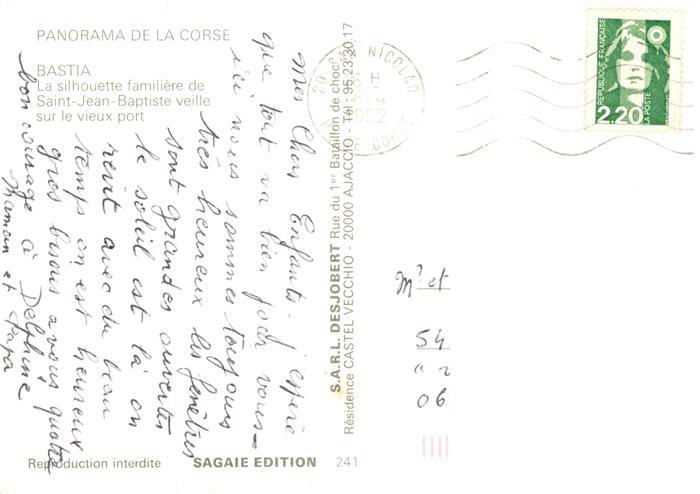 PANORAMA DE LA CORSE
BASTIA
La silhouette familière de
Saint-Jean-Baptiste veille
sur le vieux port
Mes Chers Enfants - j'espère
que tout va bien pour vous -
ici nous sommes toujours
très heureux les fenêtres
sont grandes ouvertes
le soleil est là on
revit avec du beau
temps on est heureux
gros bisous a vous quatre
bon courage à Delphine
Maman et Papa
Reproduction interdite
SAGAIE EDITION 241
S.A.R.L. DESJOBERT Rue du 1er Bataillon de choc
Résidence CASTEL VECCHIO - 20000 AJACCIO - Tél : 95.23.30.17
20 NICOLAO
1992
CORSE
REPUBLIQUE FRANÇAISE
LA POSTE
2.20
Mr et
54
06